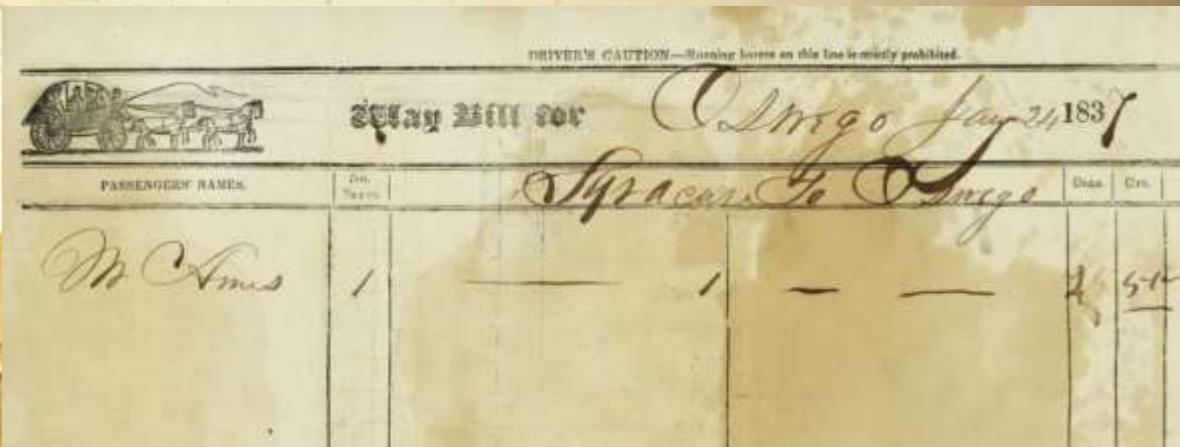 DRIVER'S CAUTION—Running horses on this line is strictly prohibited.
Way Bill for Oswego Jan 24 1837
PASSENGERS' NAMES. No. Seats. Syracuse To Oswego Dolls. Cts.
M C Ames 1 — 1 — —